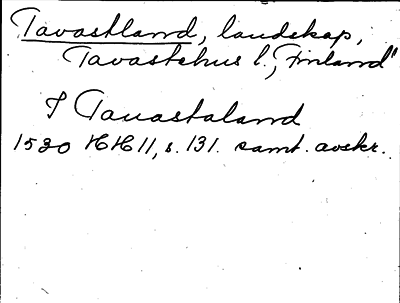 Tavastland, landskap,
Tavastehus l., Finland
I Tauastaland
1530 HH 11, s. 131. samt. avskr.